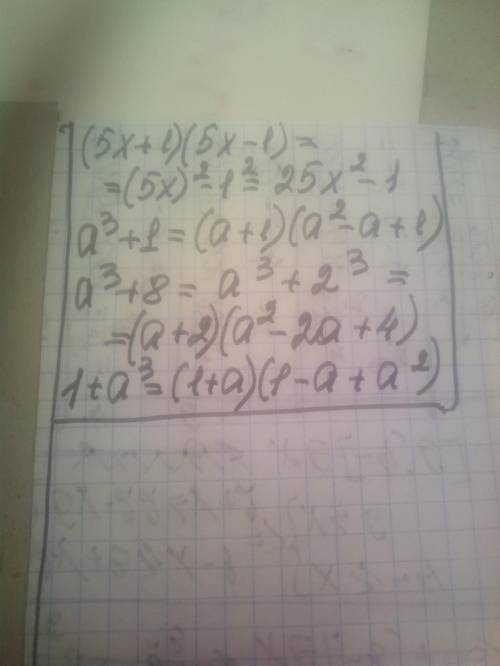 (5x+1)(5x-1)=
=(5x)²-1²=25x²-1
a³+1=(a+1)(a²-a+1)
a³+8=a³+2³=
=(a+2)(a²-2a+4)
1+a³=(1+a)(1-a+a²)